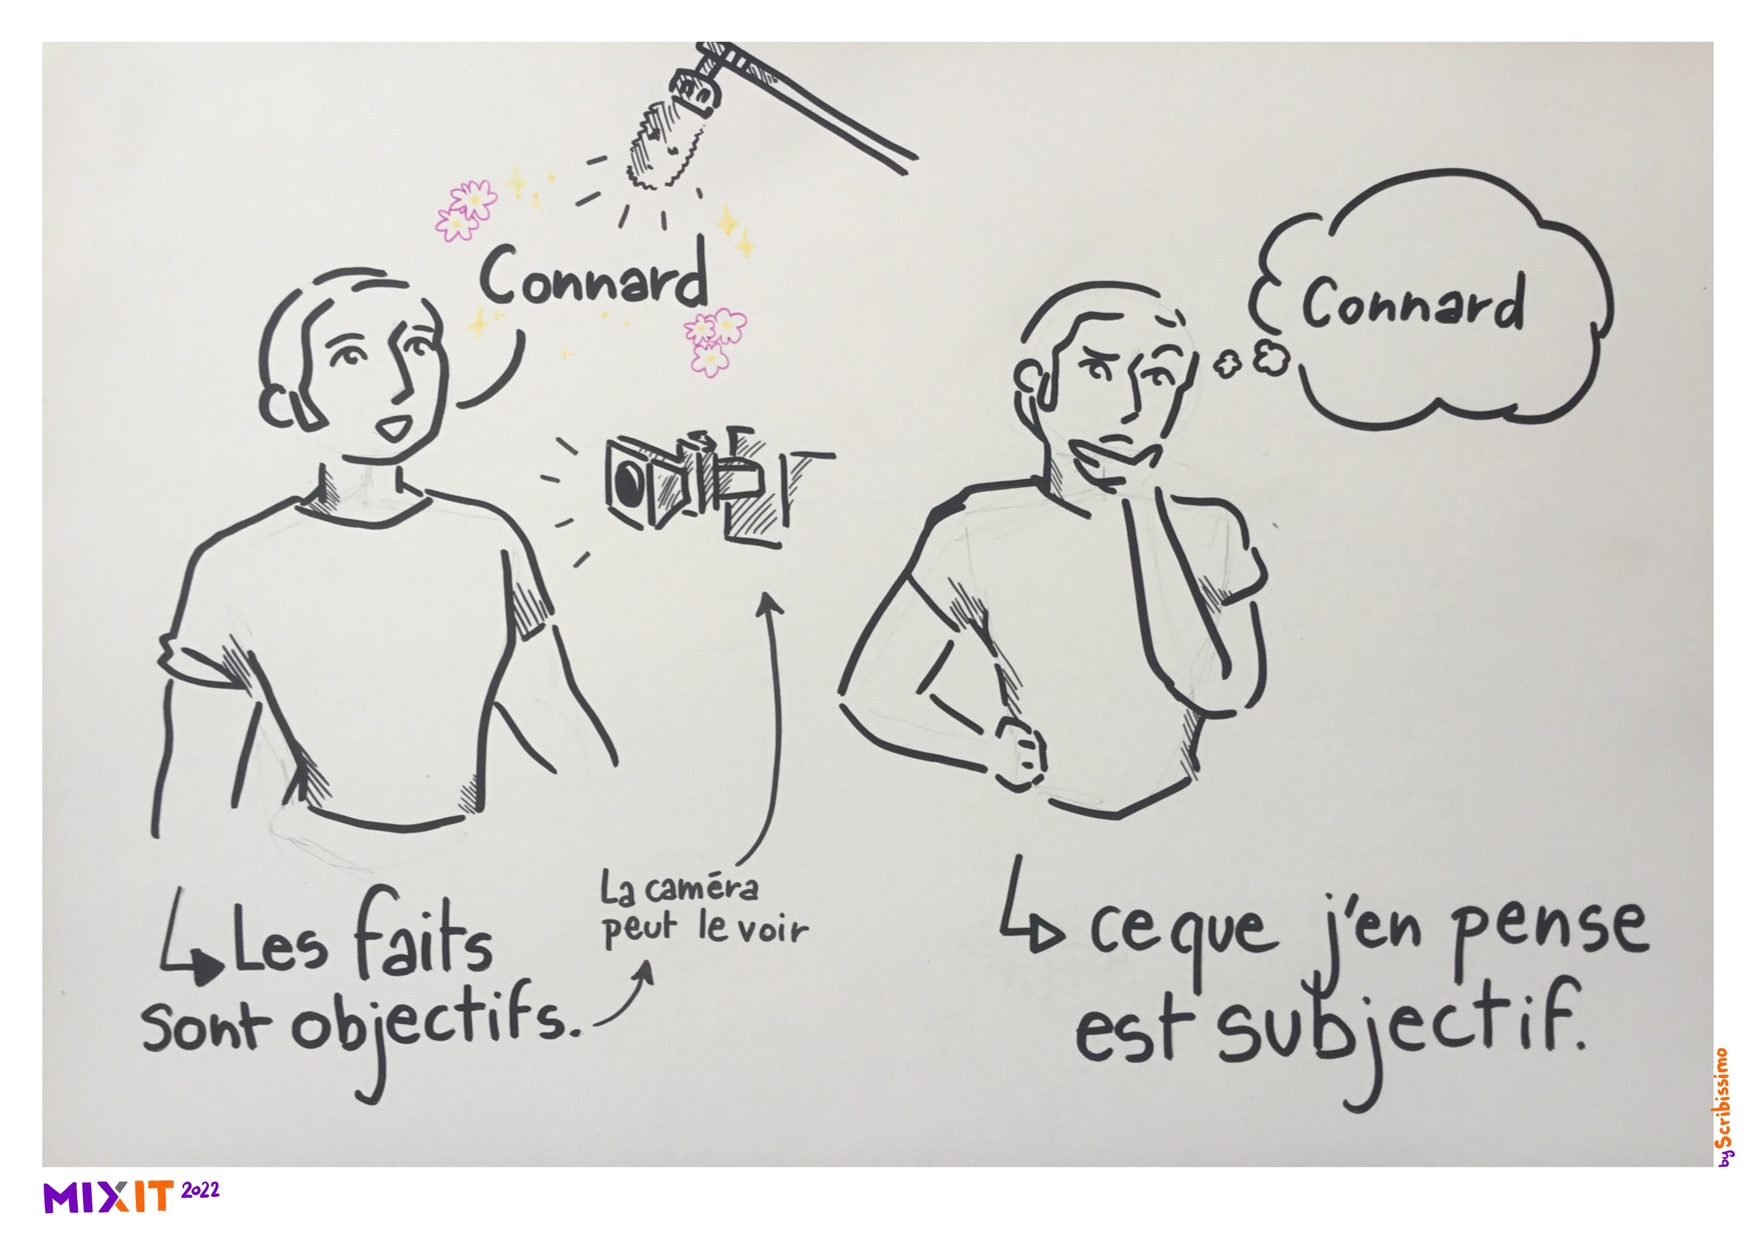 Connard
Connard
La caméra
peut le voir
Les faits
sont objectifs.
ce que j'en pense
est subjectif.
by Scribissimo
MIXIT 2022